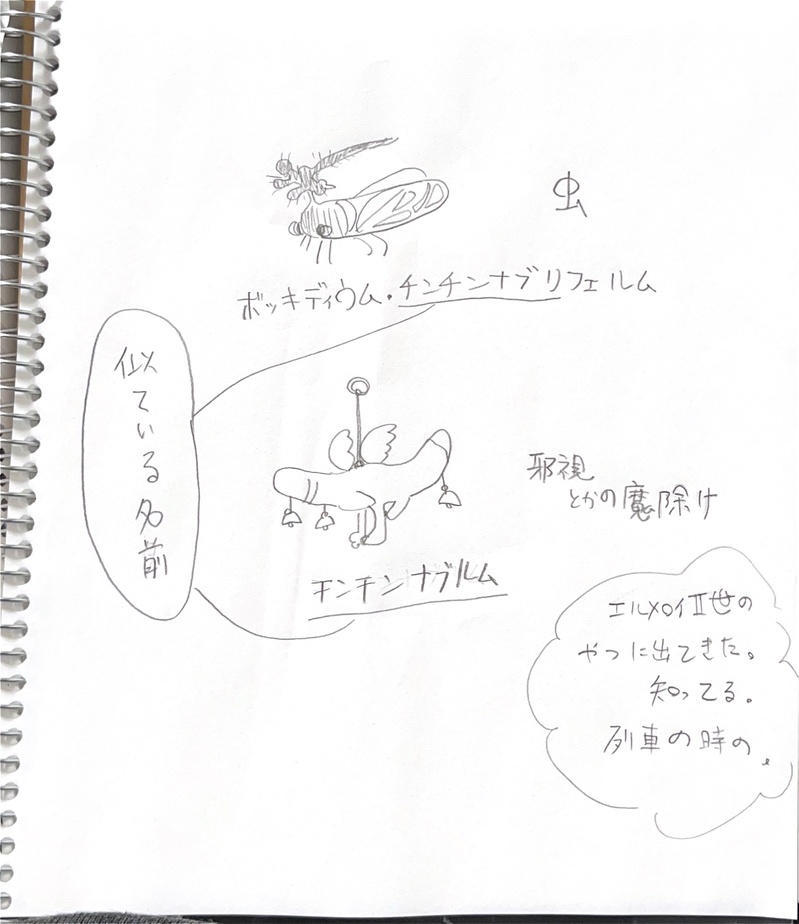 虫
ボッキディウム・チンチンナブリフェルム
似ている名前
邪視
とかの魔除け
チンチンナブルム
エルメロイⅡ世の
やつに出てきた。
知ってる。
列車の時の。